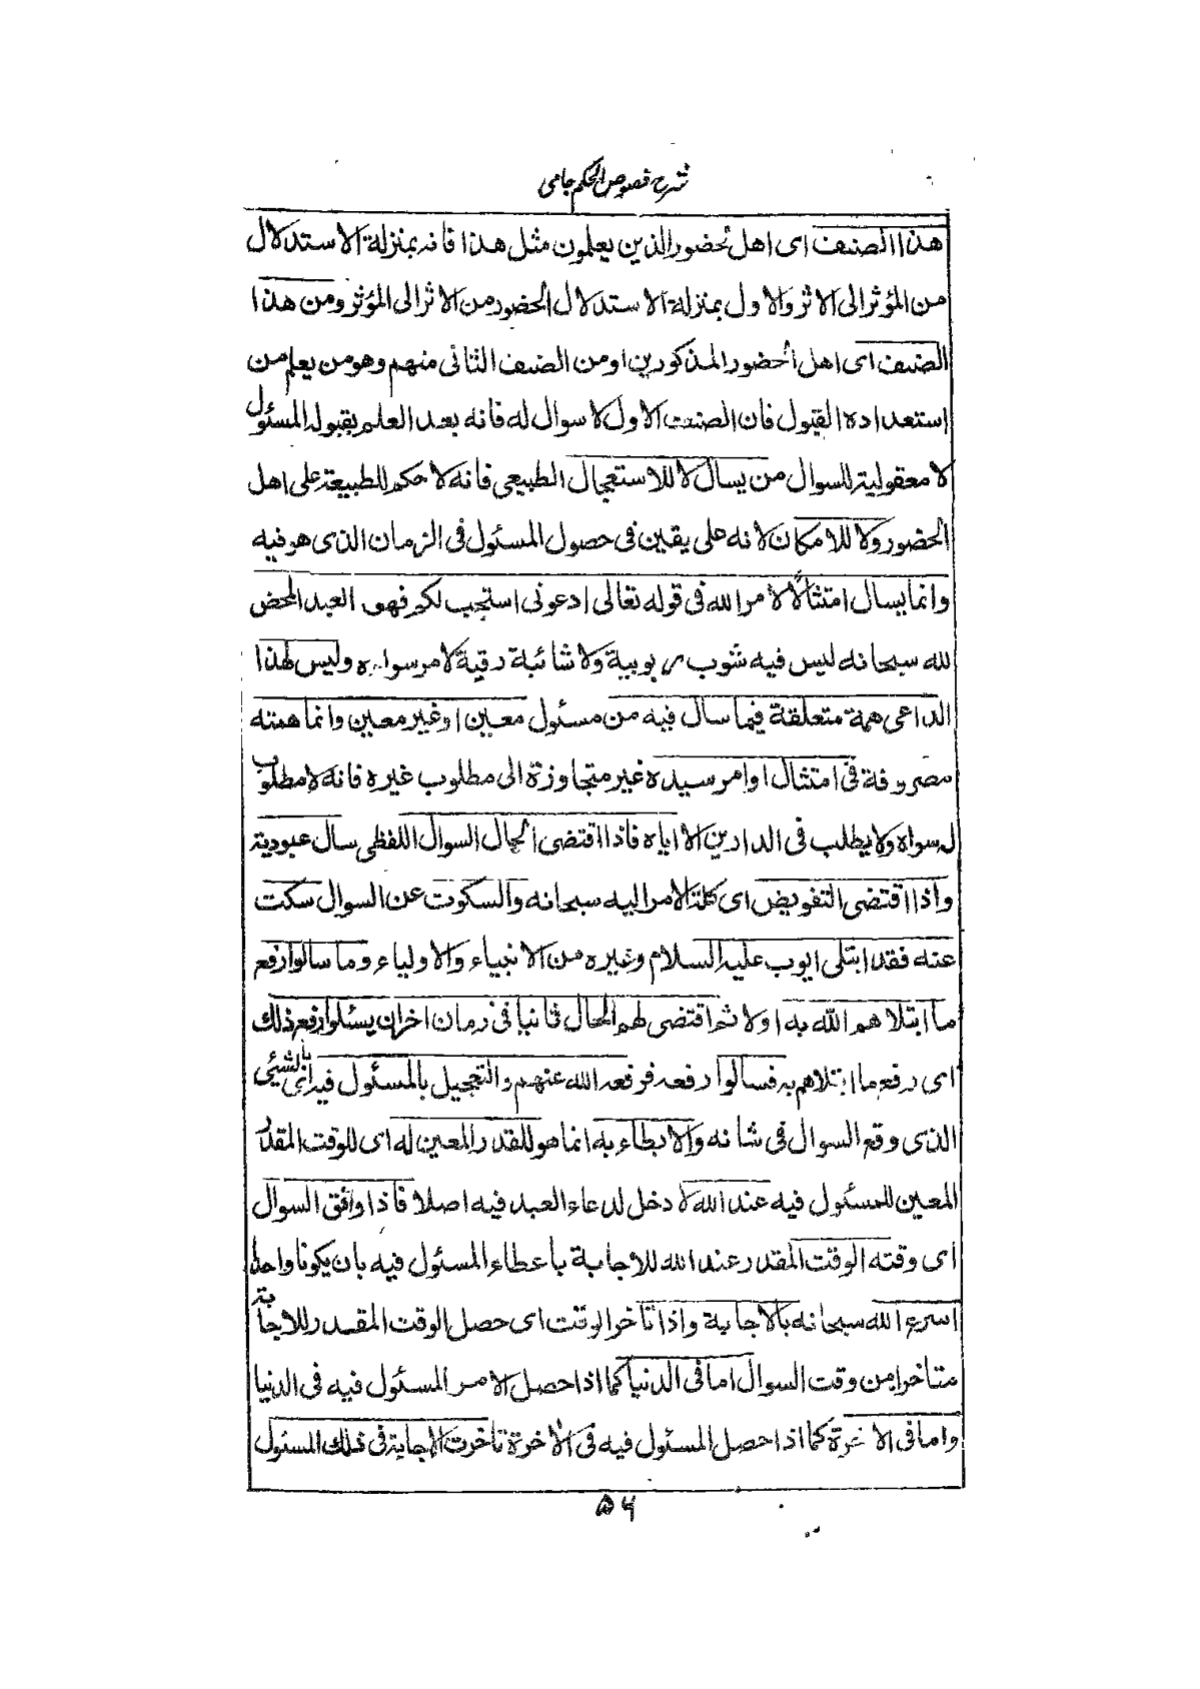 شرح فصوص الحکم جامی
هذا الصنف ای اهل الحضور الذین یعلمون مثل هذا فانه بمنزلة الاستدلال
من المؤثر الی الاثر والاول بمنزلة الاستدلال الحضور من الاثر الی المؤثر ومن هذا
الصنف ای اهل الحضور المذکورین او من الصنف الثانی منهم وهو من یعلم من
استعداده القبول فان الصنف الاول لا سوال له فانه بعد العلم بقبوله المسئول
لا معقولیة للسوال من یسال لا للاستعجال الطبیعی فانه لا حکم للطبیعة علی اهل
الحضور ولا للامکان لانه علی یقین فی حصول المسئول فی الزمان الذی هو فیه
وانما یسال امتثالا لامر الله فی قوله تعالی ادعونی استجب لکم فهو العبد المحض
لله سبحانه لیس فیه شوب ربوبیة ولا شائبة رقیة لامر سواه ولیس لهذا
الداعی همة متعلقة فیما سال فیه من مسئول معین او غیر معین وانما همته
مصروفة فی امتثال اوامر سیده غیر متجاوزة الی مطلوب غیره فانه لا مطلوب
له سواه ولا یطلب فی الدارین الا ایاه فاذا اقتضی الحال السوال اللفظی سال عبودیة
واذا اقتضی التفویض ای کلة الامر الیه سبحانه والسکوت عن السوال سکت
عنه فقد ابتلی ایوب علیه السلام وغیره من الانبیاء والاولیاء وما سالوا رفع
ما ابتلاهم الله به اولا ثم اقتضی لهم الحال ثانیا فی زمان اخر ان یسئلوا رفع ذلک
ای رفع ما ابتلاهم به فسالوا رفعه فرفعه الله عنهم والتعجیل بالمسئول فیه ای بالشیئ
الذی وقع السوال فی شانه والابطاء به انما هو للقدر المعین له ای للوقت المقدر
المعین للمسئول فیه عند الله لا دخل لدعاء العبد فیه اصلا فاذا وافق السوال
ای وقته الوقت المقدر عند الله للاجابة باعطاء المسئول فیه بان یکونا واحدا
اسرع الله سبحانه بالاجابة واذا تاخر الوقت ای حصل الوقت المقدر للاجابة
متاخرا من وقت السوال اما فی الدنیا کما اذا حصل الامر المسئول فیه فی الدنیا
واما فی الاخرة کما اذا حصل المسئول فیه فی الاخرة تاخرت الاجابة فی ذلک المسئول
۵۶